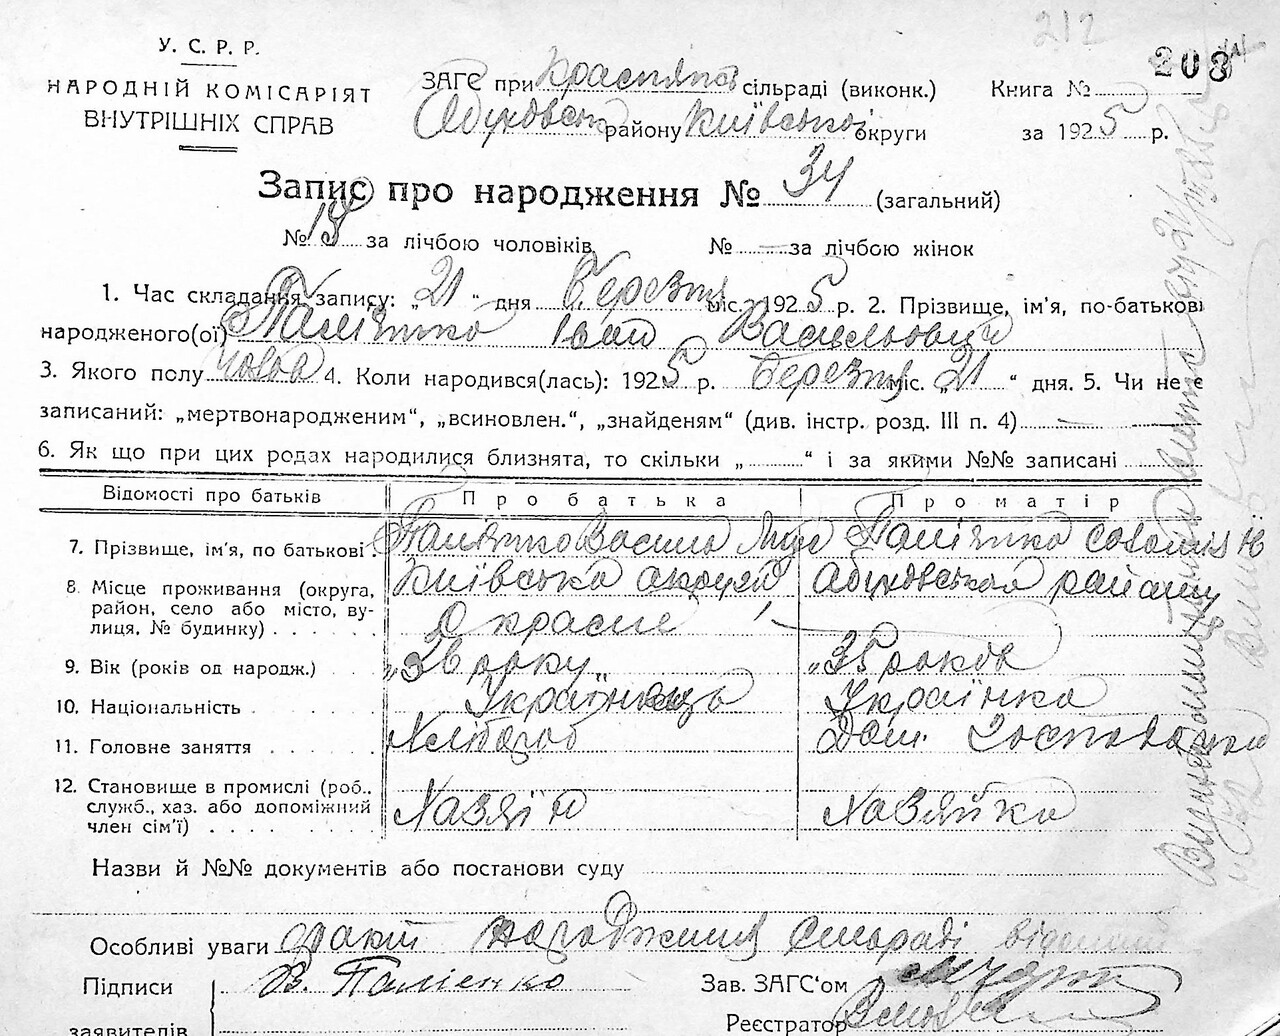 212
У. С. Р. Р.
208
НАРОДНІЙ КОМІСАРІЯТ
ВНУТРІШНІХ СПРАВ
ЗАГС при сільраді (виконк.) Книга №
Обуховськ району Київської округи за 1925 р.
Запис про народження № 34 (загальний)
№ за лічбою чоловіків № — за лічбою жінок
1. Час складання запису: „21“ дня березня міс. 1925 р. 2. Прізвище, ім'я, по-батькові
народженого(ої) Іван Васильович
3. Якого полу чолов 4. Коли народився(лась): 1925 р. березня міс. „21“ дня. 5. Чи не є
записаний: „мертвонародженим“, „всиновлен.“, „знайденям“ (див. інстр. розд. III п. 4) —
6. Як що при цих родах народилися близнята, то скільки „ “ і за якими №№ записані
Відомості про батьків Про батька Про матір
7. Прізвище, ім'я, по батькові Василь
8. Місце проживання (округа, Київська округа Обуховського району
район, село або місто, ву-
лиця, № будинку)
9. Вік (років од народж.) „36 року“ „35 років
10. Національність Українець Українка
11. Головне заняття Хлібороб Дом. Господарка
12. Становище в промислі (роб.,
служб., хаз. або допоміжний Хазяїн Хазяйка
член сім'ї)
Назви й №№ документів або постанови суду
Особливі уваги факт народження сільраді відомий
Підписи В. Палієнко Зав. ЗАГС'ом
заявителів Реєстратор